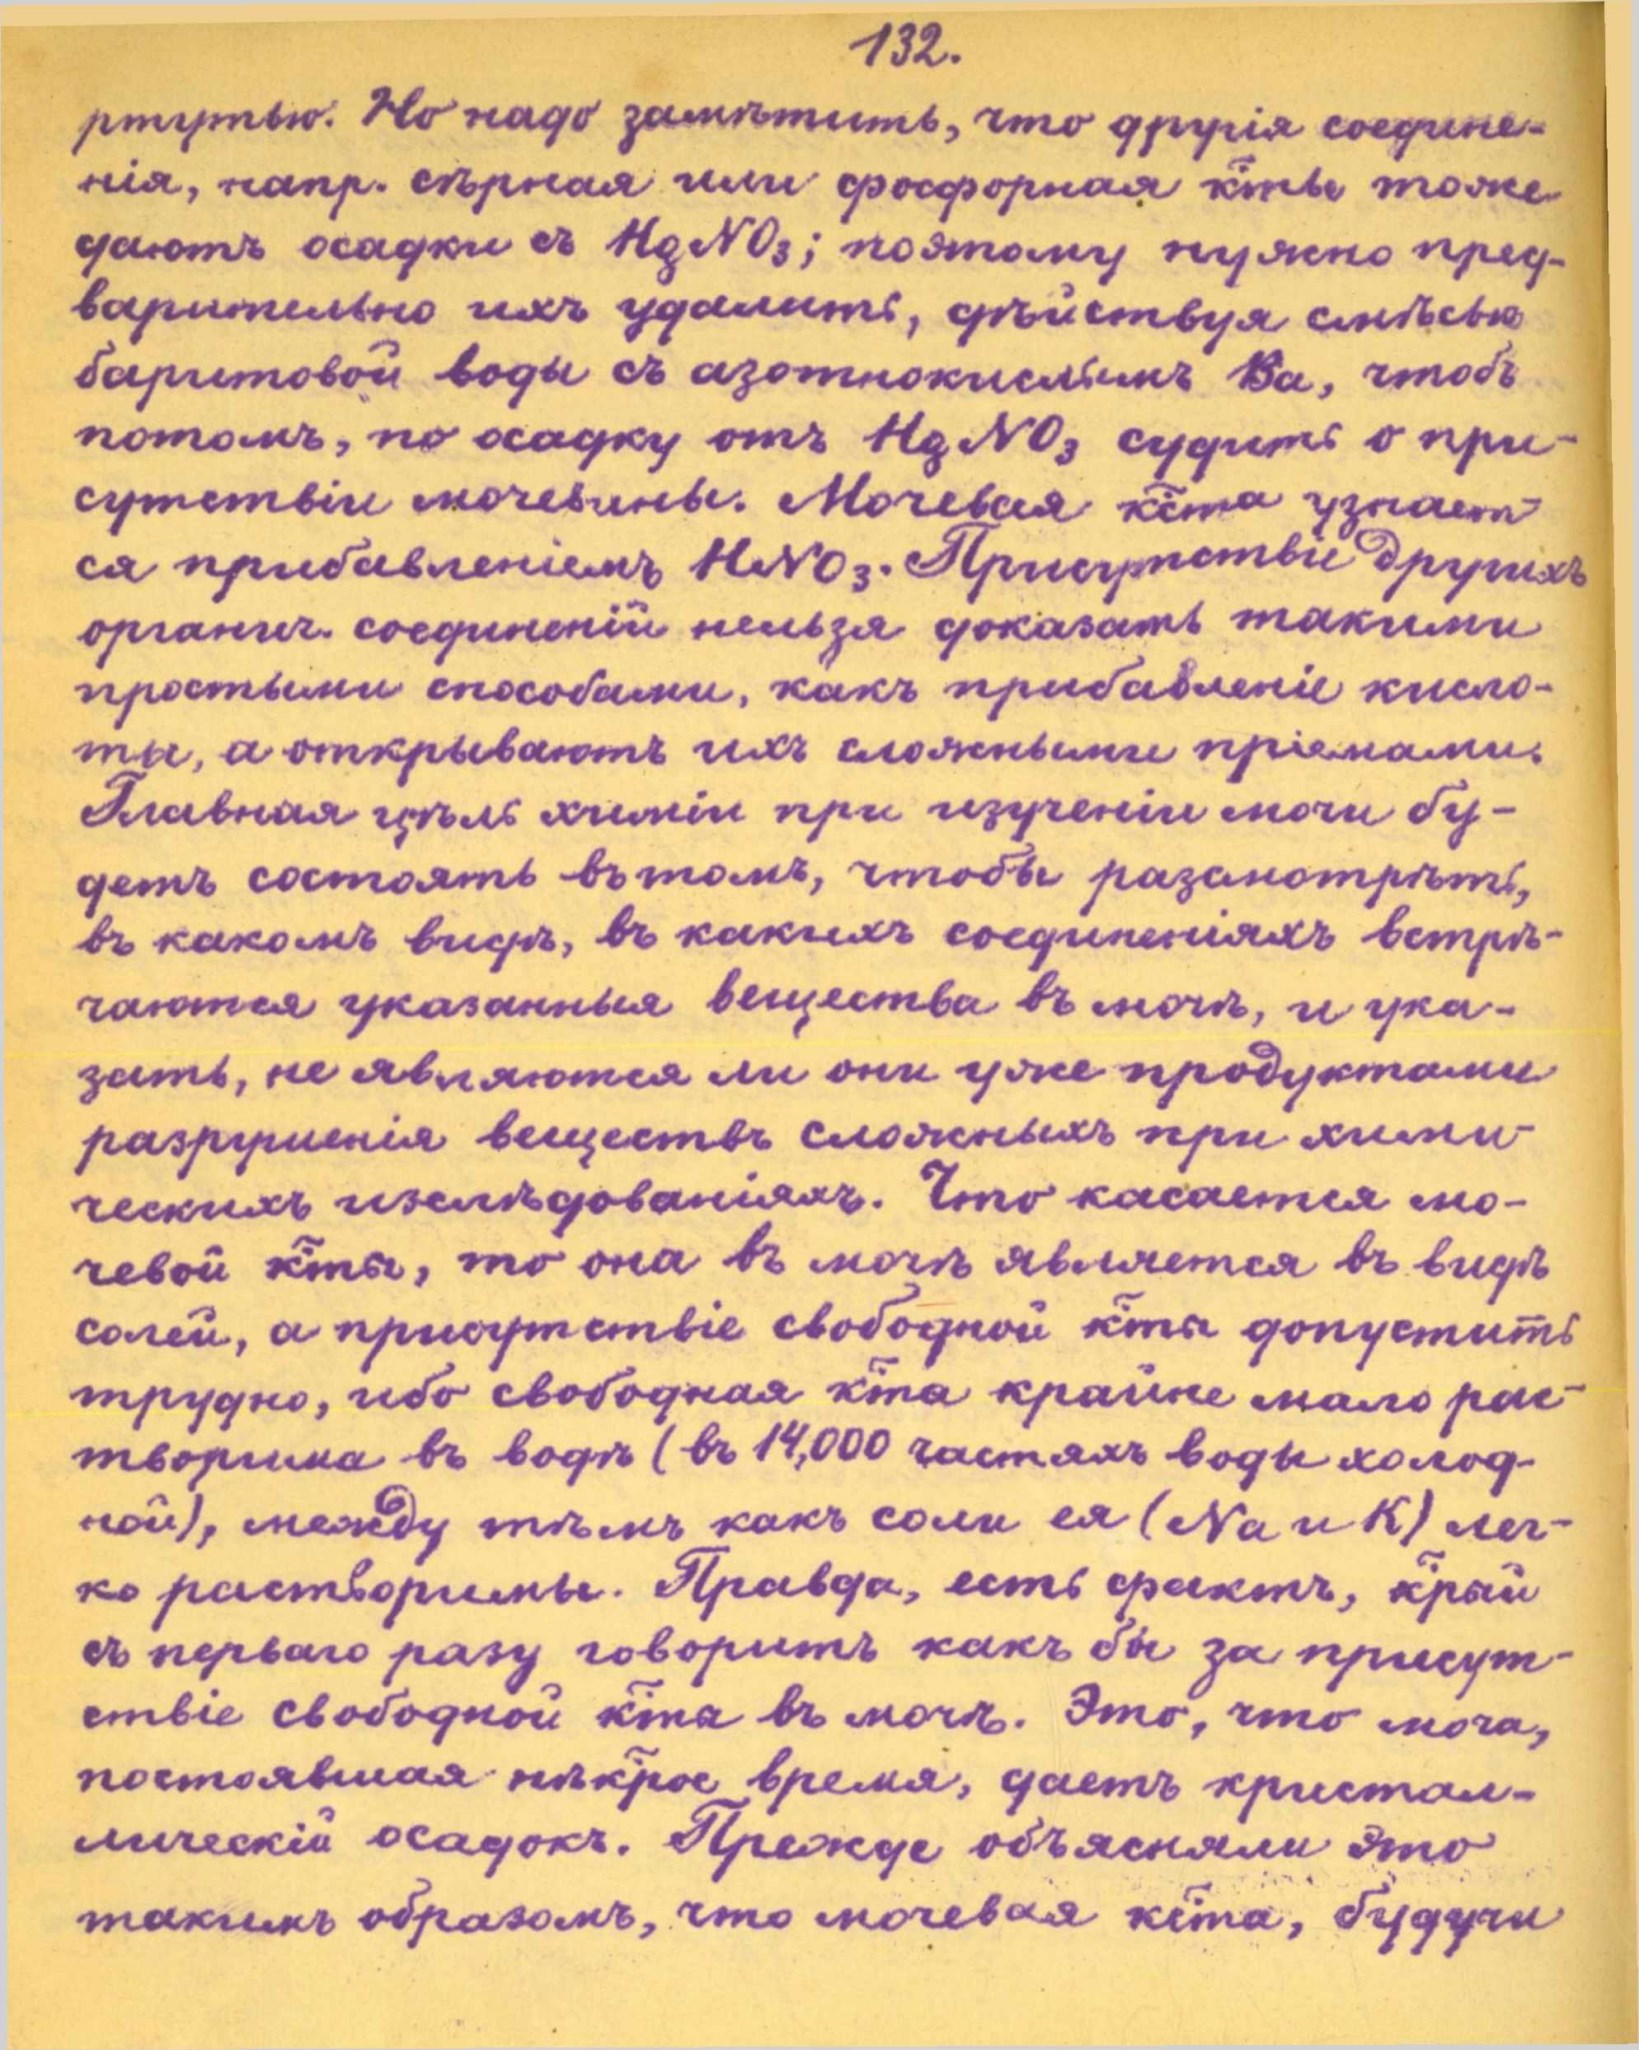 132.
ртутью. Но надо замѣтить, что другія соедине-
нія, напр. сѣрная или фосфорная к̃ты тоже
даютъ осадки съ HgNO₃; поэтому нужно пред-
варительно ихъ удалить, дѣйствуя смѣсью
баритовой воды съ азотнокислымъ Ba, чтобъ
потомъ, по осадку отъ HgNO₃ судить о при-
сутствіи мочевины. Мочевая к̃та узнает-
ся прибавленіемъ HNO₃. Присутствіе другихъ
органич. соединеній нельзя доказать такими
простыми способами, какъ прибавленіе кисло-
ты, а открываютъ ихъ сложными пріемами.
Главная цѣль химіи при изученіи мочи бу-
детъ состоять въ томъ, чтобы разсмотрѣть,
въ какомъ видѣ, въ какихъ соединеніяхъ встрѣ-
чаются указанныя вещества въ мочѣ, и ука-
зать, не являются ли они уже продуктами
разрушенія веществъ сложныхъ при хими-
ческихъ изслѣдованіяхъ. Что касается мо-
чевой к̃ты, то она въ мочѣ является въ видѣ
солей, а присутствіе свободной к̃ты допустить
трудно, ибо свободная к̃та крайне мало рас-
творима въ водѣ (въ 14,000 частяхъ воды холод-
ной), между тѣмъ какъ соли ея (Na и K) лег-
ко растворимы. Правда, есть фактъ, к̃рый
съ перваго разу говоритъ какъ бы за присут-
ствіе свободной к̃ты въ мочѣ. Это, что моча,
постоявшая нѣк̃рое время, даетъ кристал-
лическій осадокъ. Прежде объясняли это
такимъ образомъ, что мочевая к̃та, будучи